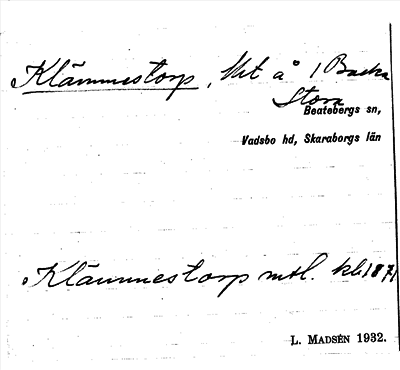 Klämmestorp, lht å 1 Backa
Stora
Beatebergs sn,
Vadsbo hd, Skaraborgs län
Klämmestorp mtl. kb 1871
L. MADSÉN 1932.